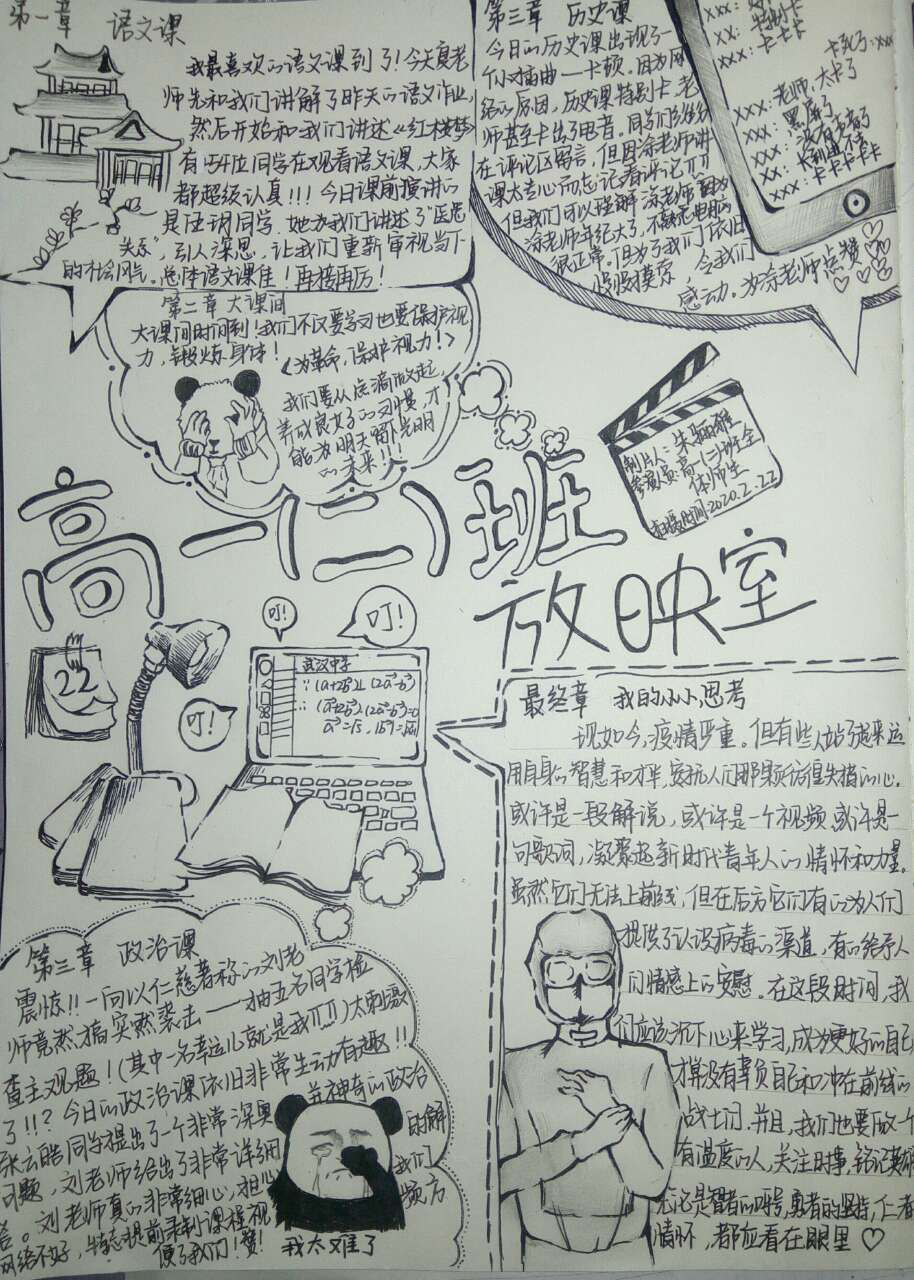 第一章 语文课
我最喜欢的语文课到了!今天良老
师先和我们讲解了昨天的语文作业,
然后开始和我们讲述《红楼梦》
有 位同学在观看语文课,大家
都超级认真!!!今日课前演讲的
是 同学.她为我们讲述了"医患
关系",引人深思,让我们重新审视当下
的社会风气。总体语文课佳!再接再厉!
第三章 历史课
今日的历史课出现了一
个小插曲——卡顿。因为网
络的原因,历史课特别卡,老
师甚至卡出了思考。同学们纷纷
在评论区留言,但因涂老师讲
课太专心而忘记看评论TT
但我们可以理解涂老师 因为
涂老师年纪大了,不熟悉电脑
很正常。但为了我们依旧
慢慢摸索,令我们
感动。为涂老师点赞♡
xxx:
xx:特别卡
xxx:卡卡卡
卡死了:xxx
xxx:老师,太卡了
xxx:黑屏了
xx:没有声音了
xx:卡到进不去
xxx:卡卡卡卡卡
第二章 大课间
大课间时间到!我们不仅要学习也要保护视
力,锻炼身体!
《为革命,保护视力!》
我们要从点滴做起,
养成良好的习惯,才
能为明天 光明
的未来!!!
制片人:朱 雅
参演人员:高一(二)班全
体师生
拍摄时间:2020.2.22
高一(二)班
放映室
22
叮!
叮!
叮!
武汉中学
∵(a+2b)⊥(2a-b)
∴(a+2b)·(2a-b)=0
最终章 我的小小思考
现如今,疫情严重。但有些人站了起来运
用自身的智慧和才华,安抚人们那颗彷徨失措的心。
或许是一段解说,或许是一个视频,或许是一
句歌词,凝聚起新时代青年人的情怀和力量。
虽然它们无法上前线,但在后方它们有的为人们
提供了认识病毒的渠道,有的给予人
们情感上的安慰。在这段时间,我
们应该沉下心来学习,成为更好的自己
才算没有辜负自己和冲在前线的
战士们,并且,我们也要做一个
有温度的人,关注时事,铭记英雄
无论是智者的呼号,勇者的坚持,仁者
情怀,都应看在眼里♡
第三章 政治课
震惊!!一向以仁慈著称的刘老
师竟然搞突然袭击——抽五名同学检
查主观题!(其中一名幸运儿就是我TT)太刺激
了!!?今日的政治课依旧非常生动有趣!!
张云皓同学提出了一个非常深奥并神奇的政治
问题,刘老师给出了非常详细的解
答。刘老师真的非常细心,担心我们
网络不好,特意提前录制课程视频方
便了我们!赞!
我太难了